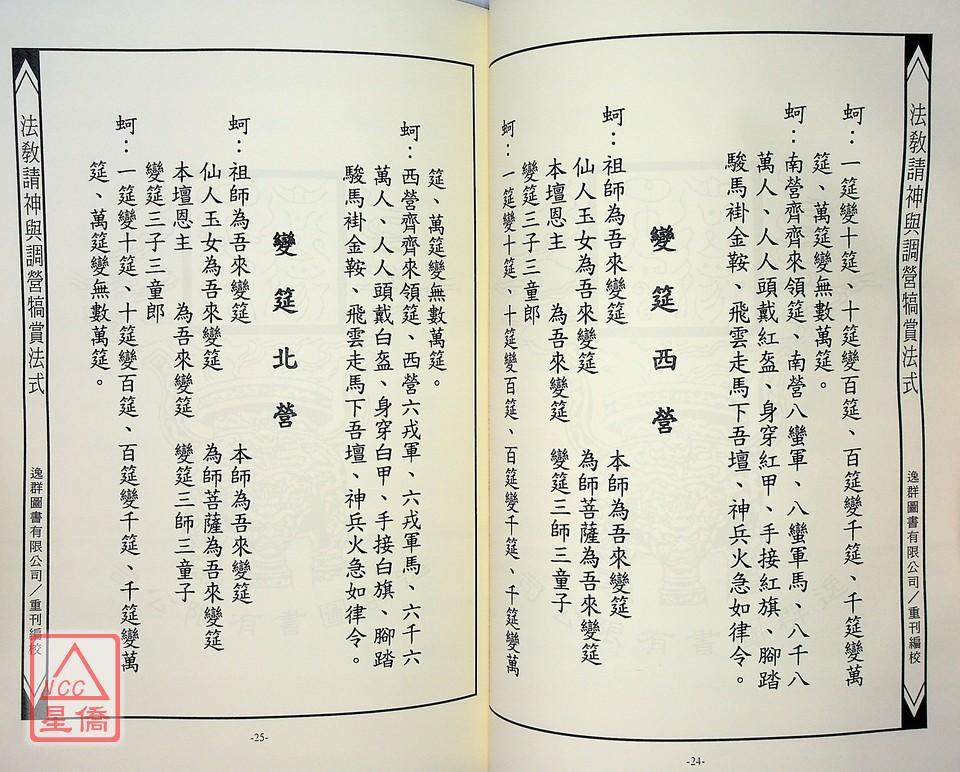 法教請神與調營犒賞法式
逸群圖書有限公司／重刊編校
蚵：一筵變十筵、十筵變百筵、百筵變千筵、千筵變萬
筵、萬筵變無數萬筵。
蚵：南營齊齊來領筵、南營八蠻軍、八蠻軍馬、八千八
萬人、人人頭戴紅盔、身穿紅甲、手接紅旗、腳踏
駿馬褂金鞍、飛雲走馬下吾壇、神兵火急如律令。
變筵西營
蚵：祖師為吾來變筵　本師為吾來變筵
仙人玉女為吾來變筵　為師菩薩為吾來變筵
本壇恩主　為吾來變筵　變筵三師三童子
變筵三子三童郎
蚵：一筵變十筵、十筵變百筵、百筵變千筵、千筵變萬
-24-
筵、萬筵變無數萬筵。
蚵：西營齊齊來領筵、西營六戎軍、六戎軍馬、六千六
萬人、人人頭戴白盔、身穿白甲、手接白旗、腳踏
駿馬褂金鞍、飛雲走馬下吾壇、神兵火急如律令。
變筵北營
蚵：祖師為吾來變筵　本師為吾來變筵
仙人玉女為吾來變筵　為師菩薩為吾來變筵
本壇恩主　為吾來變筵　變筵三師三童子
變筵三子三童郎
蚵：一筵變十筵、十筵變百筵、百筵變千筵、千筵變萬
筵、萬筵變無數萬筵。
法教請神與調營犒賞法式
逸群圖書有限公司／重刊編校
-25-
NCC
星僑